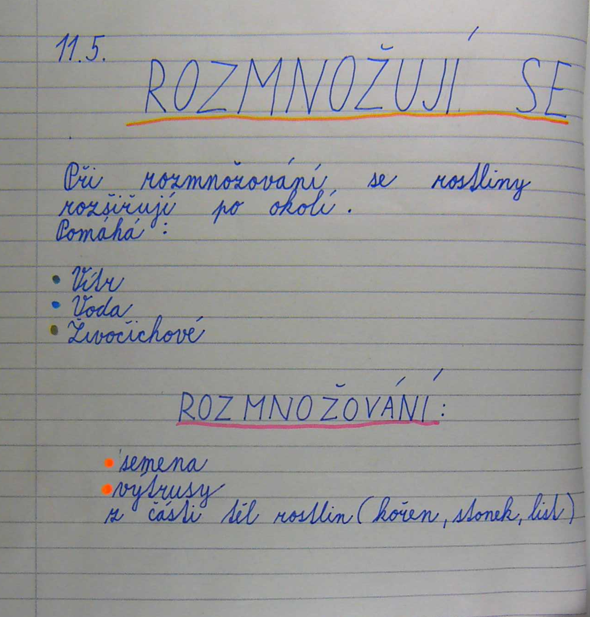 11.5.
ROZMNOŽUJÍ SE
Při rozmnožování se rostliny
rozšiřují po okolí.
Pomáhá:
• Vítr
• Voda
• Živočichové
ROZMNOŽOVÁNÍ:
• semena
• výtrusy
z části těl rostlin (kořen, stonek, list)